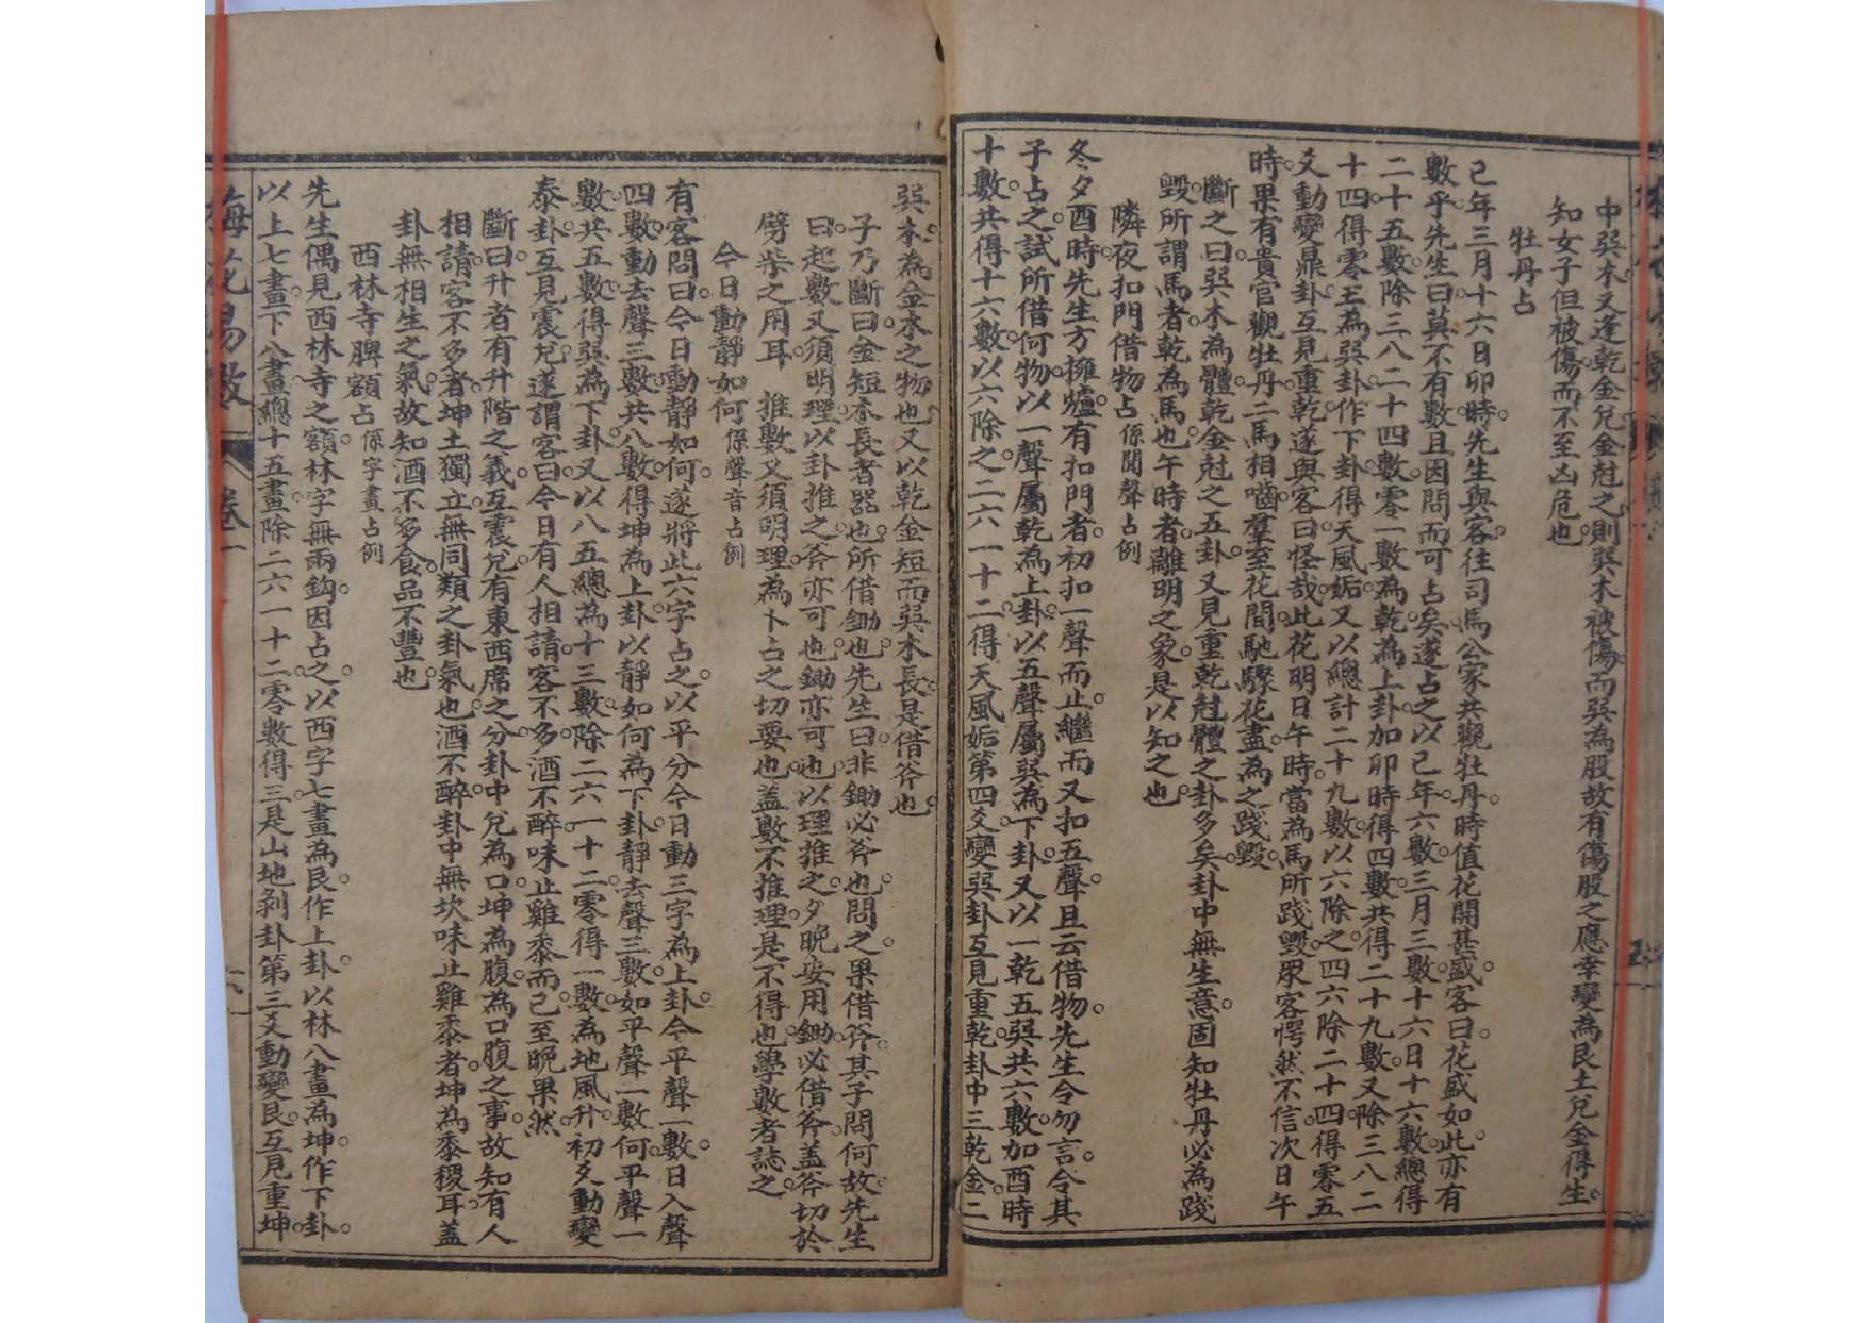 中巽木又逢乾金兌金尅之則巽木被傷而巽為股故有傷股之應幸變為艮土兌金得生
知女子但被傷而不至凶危也
牡丹占
己年三月十六日卯時先生與客往司馬公家共觀牡丹時值花開甚盛客曰花盛如此亦有
數乎先生曰莫不有數且因問而可占矣遂占之以己年六數三月三數十六日十六數總得
二十五數除三八二十四數零一數為乾為上卦加卯時得四數共得二十九數又除三八二
十四得零五為巽卦作下卦得天風姤又以總計二十九數以六除之四六除二十四得零五
爻動變鼎卦互見重乾遂與客曰怪哉此花明日午時當為馬所踐毀眾客愕然不信次日午
時果有貴官觀牡丹二馬相嚙羣至花間馳驟花盡為之踐毀
斷之曰巽木為體乾金尅之五卦又見重乾尅體之卦多矣卦中無生意固知牡丹必為踐
毀所謂馬者乾為馬也午時者離明之象是以知之也
隣夜扣門借物占係聞聲占例
冬夕酉時先生方擁爐有扣門者初扣一聲而止繼而又扣五聲且云借物先生令勿言令其
子占之試所借何物以一聲屬乾為上卦以五聲屬巽為下卦又以一乾五巽共六數加酉時
十數共得十六數以六除之二六一十二得天風姤第四爻變巽卦互見重乾卦中三乾金二
巽木為金木之物也又以乾金短而巽木長是借斧也
子乃斷曰金短木長者器也所借鋤也先生曰非鋤必斧也問之果借斧其子問何故先生
曰起數又須明理以卦推之斧亦可也鋤亦可也以理推之夕晚安用鋤必借斧盖斧切於
劈柴之用耳 推數又須明理為卜占之切要也盖數不推理是不得也學數者誌之
今日動靜如何係聲音占例
有客問曰今日動靜如何遂將此六字占之以平分今日動三字為上卦今平聲一數日入聲
四數動去聲三數共八數得坤為上卦以靜如何為下卦靜去聲三數如平聲一數何平聲一
數共五數得巽為下卦又以八五總為十三數除二六一十二零得一數為地風升初爻動變
泰卦互見震兌遂謂客曰今日有人相請客不多酒不醉味止雞黍而已至晚果然
斷曰升者有升階之義互震兌有東西席之分卦中兌為口坤為腹為口腹之事故知有人
相請客不多者坤土獨立無同類之卦氣也酒不醉卦中無坎味止雞黍者坤為黍稷耳盖
卦無相生之氣故知酒不多食品不豐也
西林寺脾額占係字畫占例
先生偶見西林寺之額林字無兩鈎因占之以西字七畫為艮作上卦以林八畫為坤作下卦
以上七畫下八畫總十五畫除二六一十二零數得三是山地剝卦第三爻動變艮互見重坤
梅花易數
卷一
六